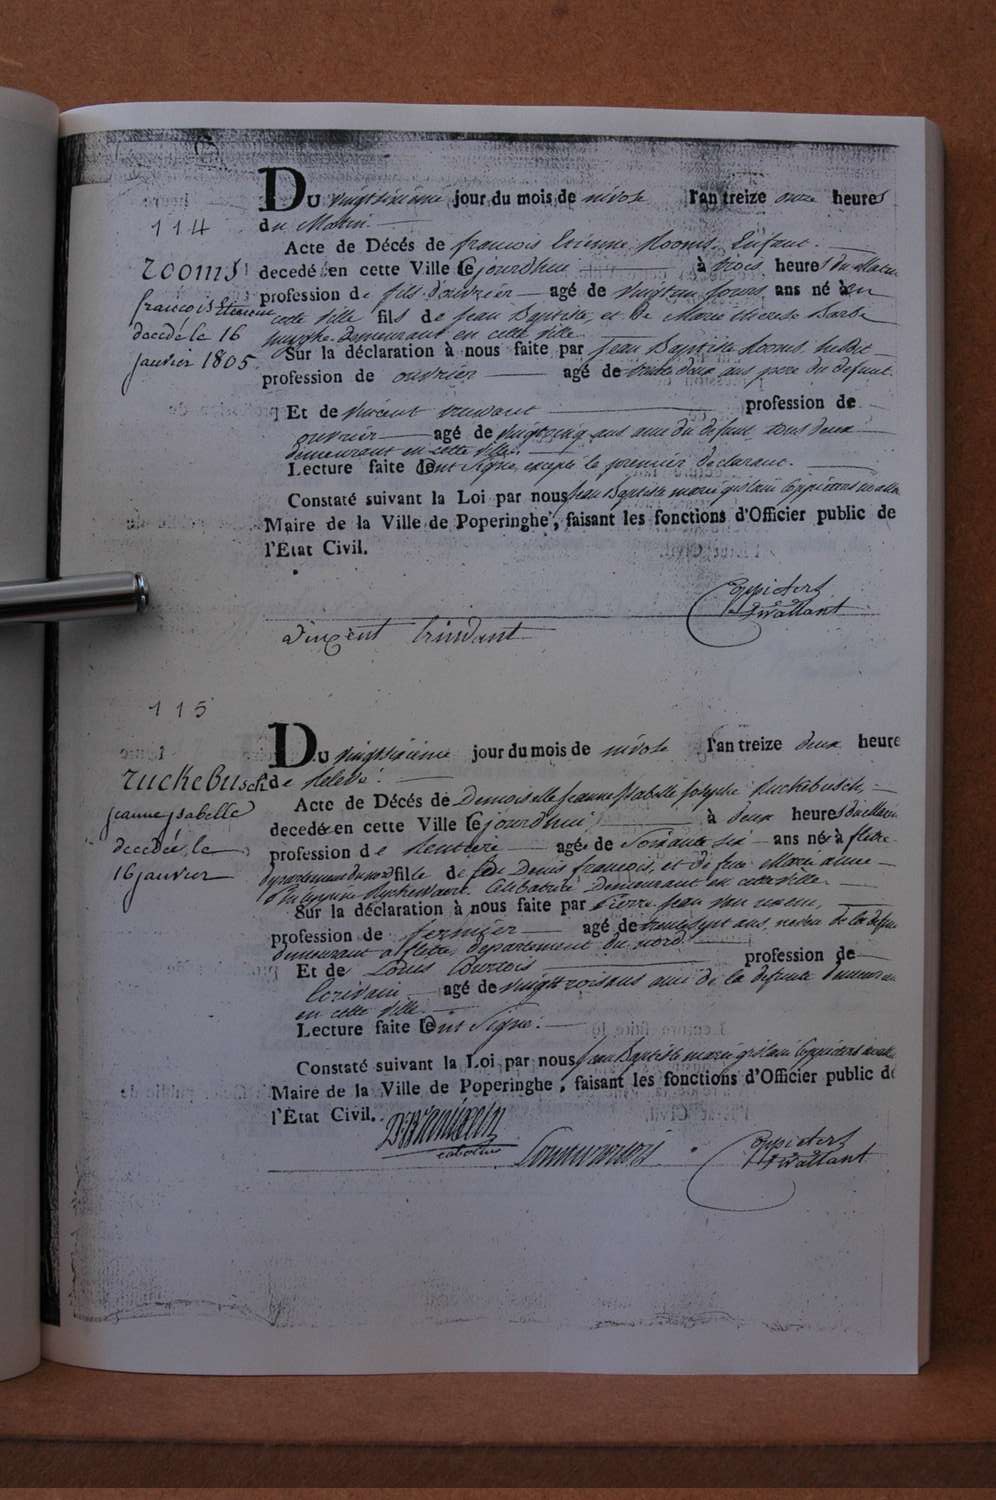 114
Du vingtsixieme jour du mois de nivose l'an treize onze heures
du Matin.
rooms
françois Etienne
decedé le 16
janvier 1805
Acte de Décés de francois Etienne Rooms, Enfant.
decedé en cette Ville le jourdhui à trois heures du Matin
profession de fils d'ouvrier agé de vingtun jours ans né à en
cette ville fils de Jean Baptiste, et de Marie therese Barbe
demeurant en cette ville
Sur la déclaration à nous faite par Jean Baptiste Rooms
profession de ouvrier agé de trente deux ans pere du defunt
Et de vincent profession de
ouvrier agé de vingtcinq ans ami du defunt, tous deux
demeurant en cette ville.
Lecture faite ont signé, excepté le premier declarant.
Constaté suivant la Loi par nous Jean Baptiste marie guislain Coppieters wallant
Maire de la Ville de Poperinghe, faisant les fonctions d'Officier public de
l'État Civil.
Coppieters
Wallant
vincent
115
Du vingtsixieme jour du mois de nivose l'an treize deux heure
de Relevé.
ruckebusch
jeanne jsabelle
decedée le
16 janvier
Acte de Décés de Demoiselle Jeanne Isabelle Josephe Ruckebusch,
decedée en cette Ville le jourdhui à deux heures du Matin
profession de Rentiere agée de Soixante six ans née à fletre
departement du nord fille de feu Denis francois, et de feue Marie anne
Celibataire Demeurant en cette ville.
Sur la déclaration à nous faite par Pierre Jean
profession de fermier agé de trentesept ans, neveu de la defunte
demeurant a fletre, departement du nord.
Et de Louis Courtois profession de
Ecrivain agé de vingttrois ans ami de la defunte demeurant
en cette ville.
Lecture faite ont Signé.
Constaté suivant la Loi par nous Jean Baptiste marie guislain Coppieters wallant
Maire de la Ville de Poperinghe, faisant les fonctions d'Officier public de
l'État Civil.
Coppieters
Wallant